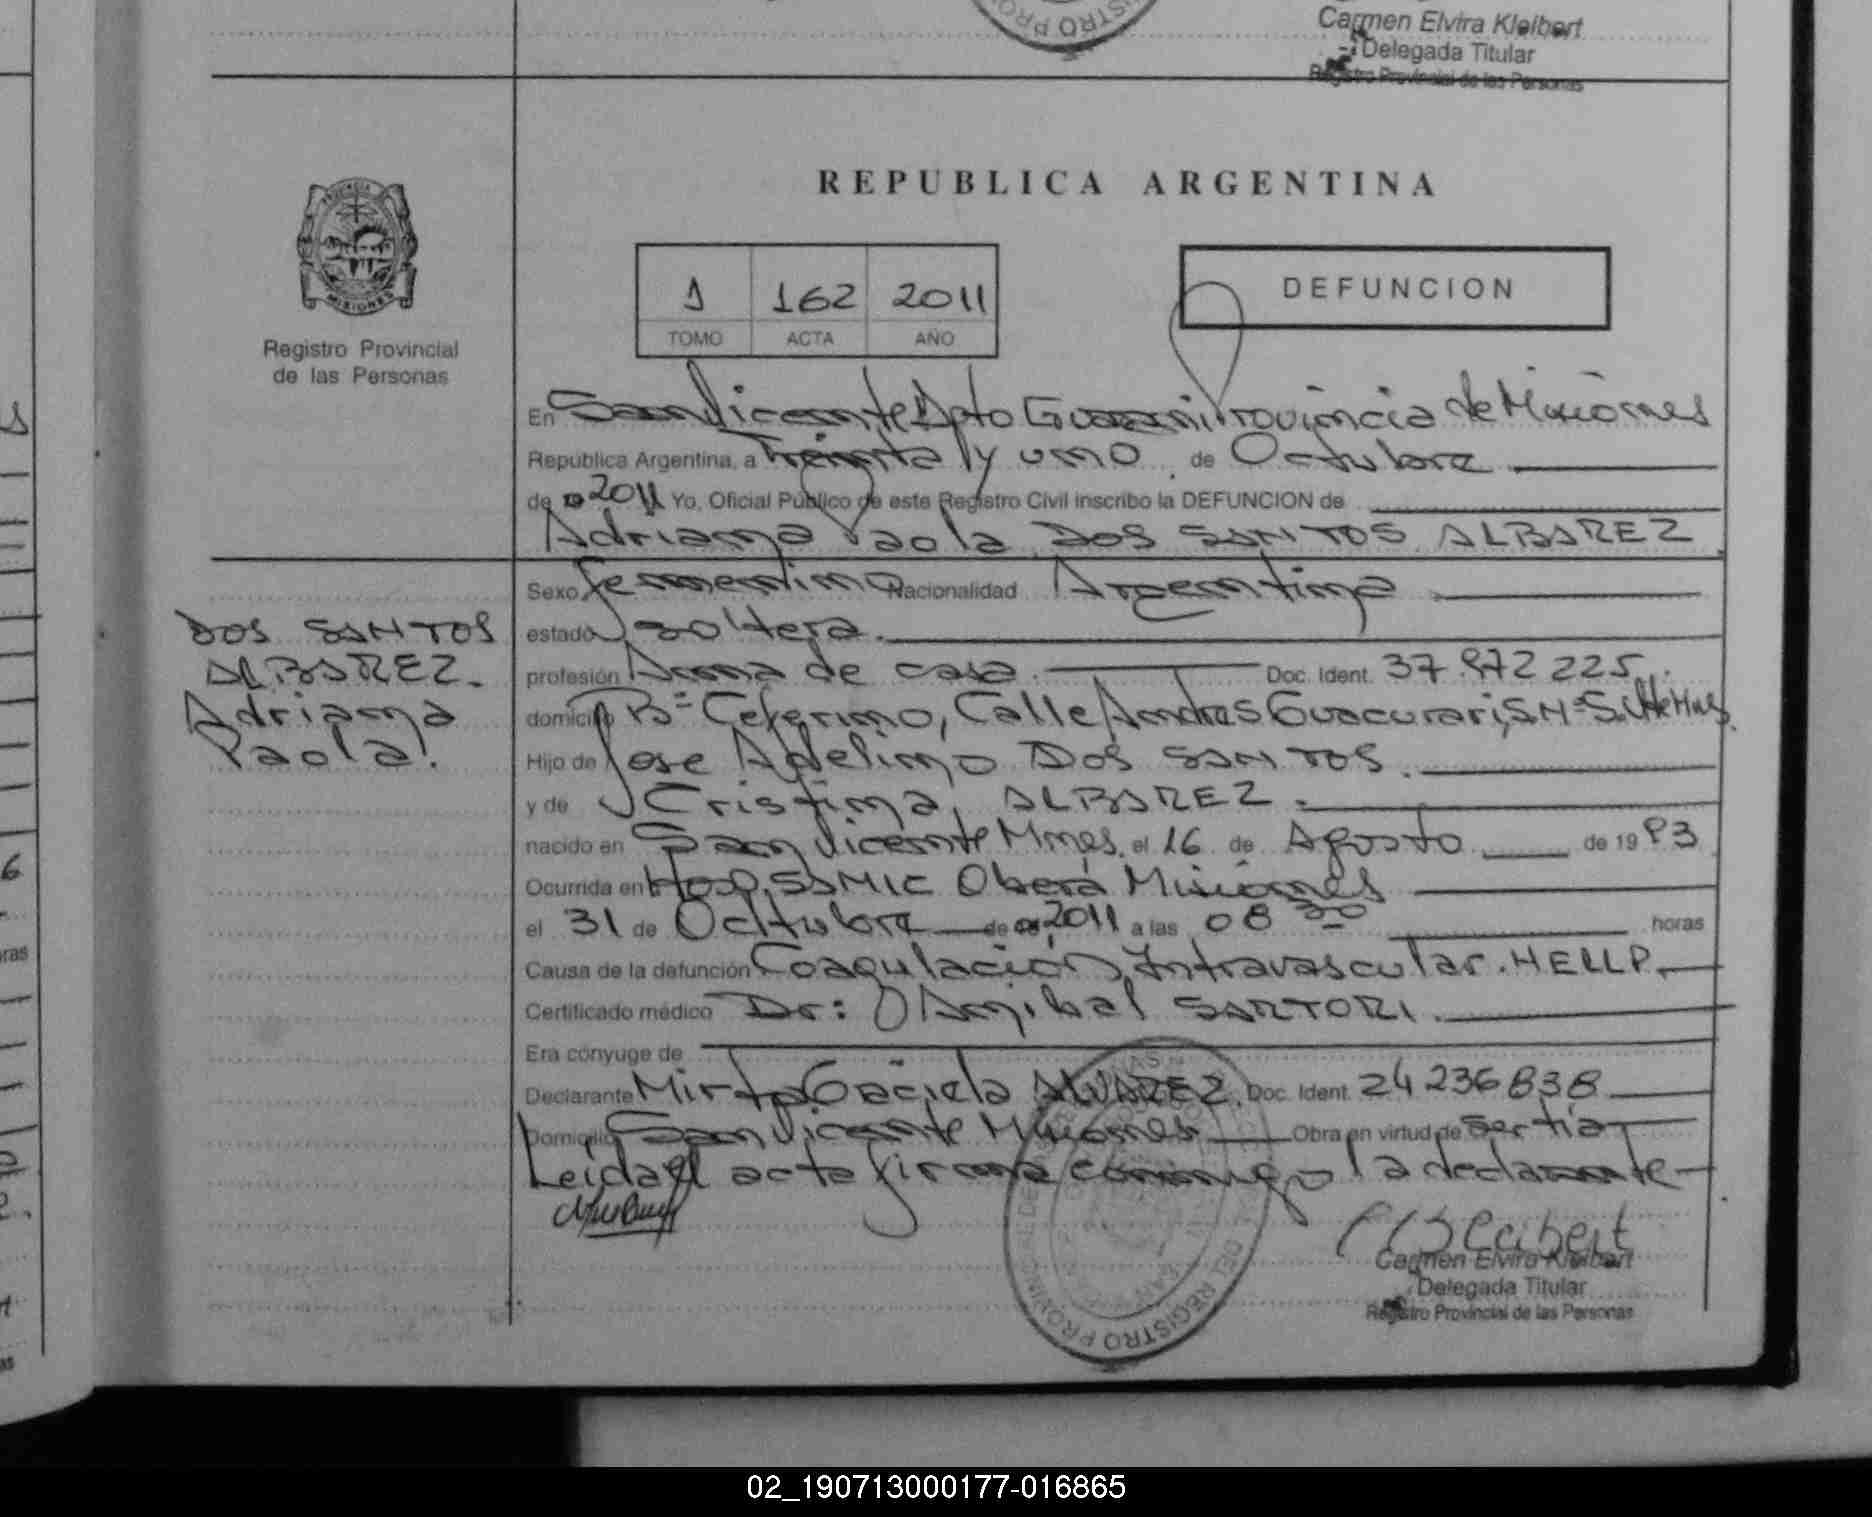 Carmen Elvira Kleibert
Delegada Titular
Registro Provincial de las Personas
REPUBLICA ARGENTINA
MISIONES
Registro Provincial
de las Personas
1 162 2011
TOMO ACTA AÑO
DEFUNCION
En San Vicente Dpto Guarani Provincia de Misiones
Republica Argentina, a Treinta y uno de Octubre
de 2011 Yo, Oficial Público de este Registro Civil inscribo la DEFUNCION de
Adriana Paola DOS SANTOS ALBAREZ
DOS SANTOS
ALBAREZ.
Adriana
Paola.
Sexo femenino Nacionalidad Argentina
estado soltera.
profesión Ama de casa Doc. Ident. 37.972 225.
domicilio Bº Ceferino, Calle Andres Guacurari, S.Nº
Hijo de Jose Adelino DOS SANTOS.
y de Cristina, ALBAREZ.
nacido en San Vicente Mnes. el 16 de Agosto de 19 93
Ocurrida en Hosp. SAMIC Oberá Misiones
el 31 de Octubre de 2011 a las 08 30 horas
Causa de la defunción Coagulación Intravascular. HELLP.
Certificado médico Dr: Anibal SARTORI.
Era cónyuge de
Declarante Mirta Gaciela ALVAREZ. Doc. Ident. 24 236 838
Domicilio San Vicente Misiones Obra en virtud de
Leida el acta firma conmigo la declarante
Carmen Elvira Kleibert
Delegada Titular
Registro Provincial de las Personas
02_190713000177-016865